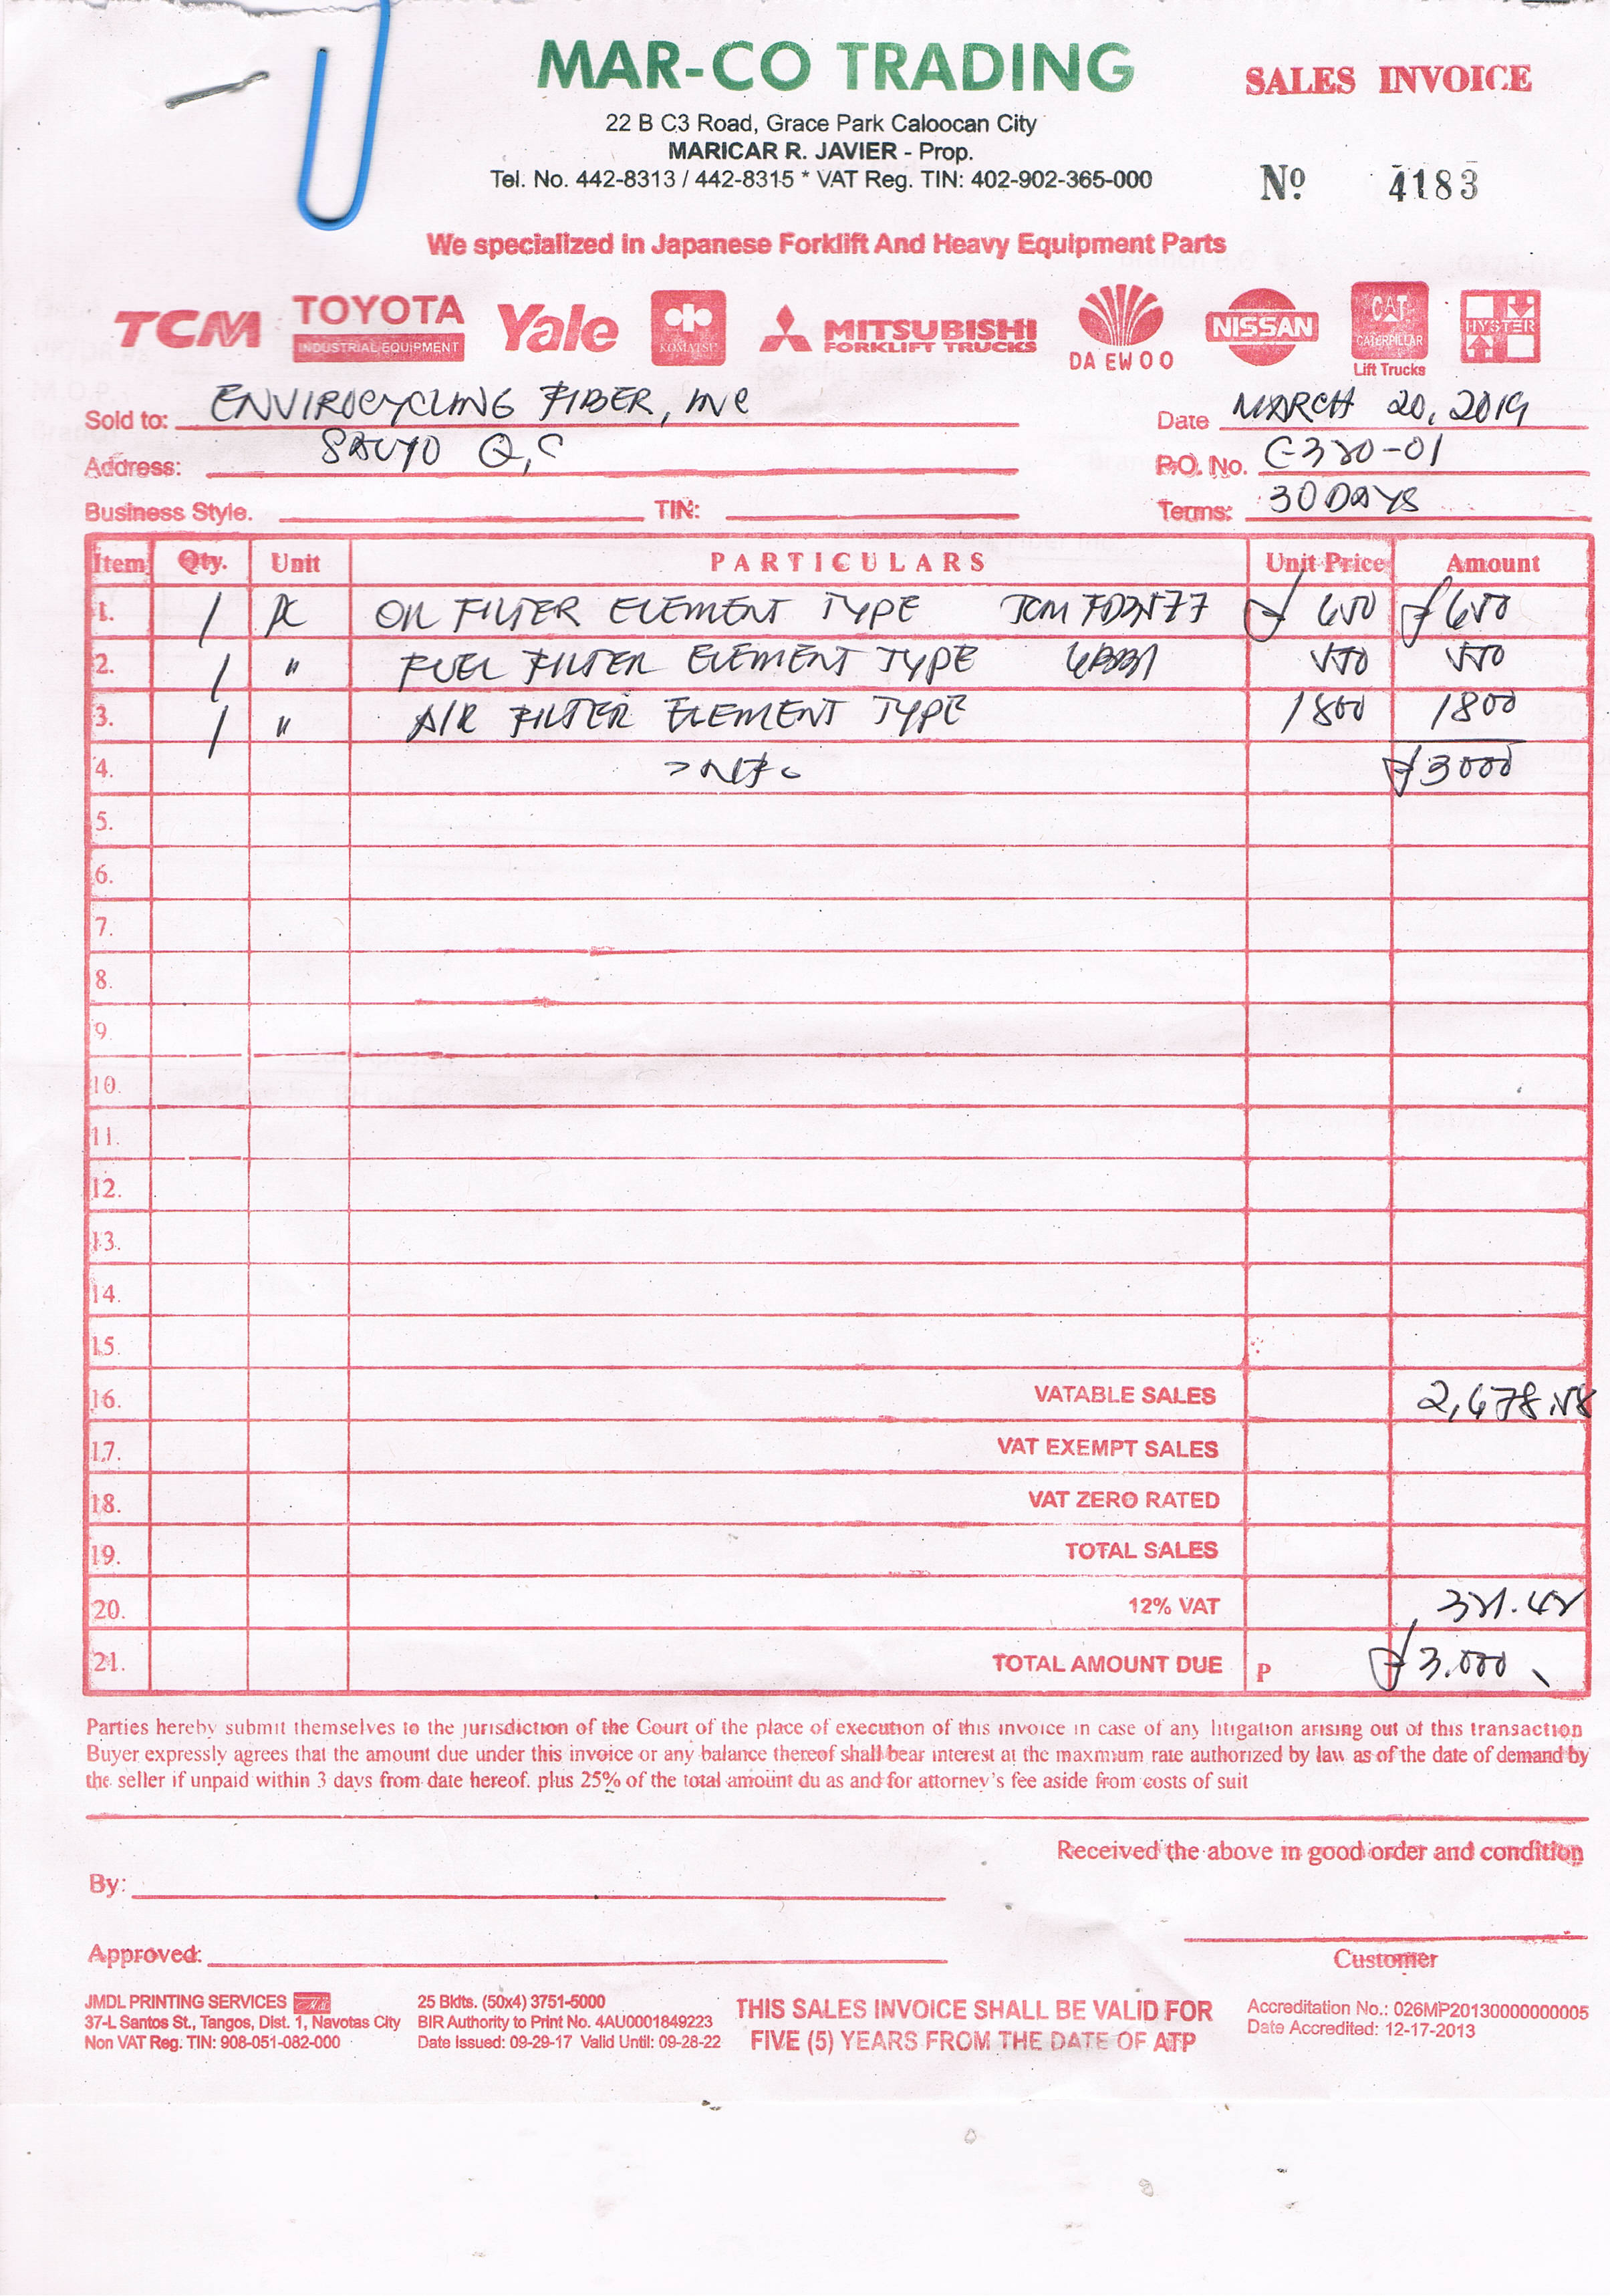 MAR-CO TRADING
SALES INVOICE
22 B C3 Road, Grace Park Caloocan City
MARICAR R. JAVIER - Prop.
Tel. No. 442-8313 / 442-8315 * VAT Reg. TIN: 402-902-365-000
Nº 4183
We specialized in Japanese Forklift And Heavy Equipment Parts
TCM TOYOTA INDUSTRIAL EQUIPMENT Yale KOMATSU MITSUBISHI FORKLIFT TRUCKS DAEWOO NISSAN CAT CATERPILLAR Lift Trucks HYSTER
Sold to: ENVIROCYCLING FIBER, INC Date MARCH 20, 2019
Address: SAUYO Q,C P.O. No. C-320-01
Business Style. TIN: Terms: 30 DAYS
Item Qty. Unit PARTICULARS Unit Price Amount
1. 1 PC OIL FILTER ELEMENT TYPE TCM ₱ 650 ₱ 650
2. 1 " FUEL FILTER ELEMENT TYPE 6BB1 550 550
3. 1 " AIR FILTER ELEMENT TYPE 1800 1800
4. ₱ 3000
5.
6.
7.
8.
9
10.
11.
12.
13.
14.
15.
16. VATABLE SALES 2,678.58
17. VAT EXEMPT SALES
18. VAT ZERO RATED
19. TOTAL SALES
20. 12% VAT 321.42
21. TOTAL AMOUNT DUE P ₱ 3.000
Parties hereby submit themselves to the jurisdiction of the Court of the place of execution of this invoice in case of any litigation arising out of this transaction
Buyer expressly agrees that the amount due under this invoice or any balance thereof shall bear interest at the maxmum rate authorized by law as of the date of demand by
the seller if unpaid within 3 days from date hereof. plus 25% of the total amount du as and for attorney's fee aside from costs of suit
Received the above in good order and condition
By:
Approved:
Customer
JMDL PRINTING SERVICES
37-L Santos St., Tangos, Dist. 1, Navotas City
Non VAT Reg. TIN: 908-051-082-000
25 Bklts. (50x4) 3751-5000
BIR Authority to Print No. 4AU0001849223
Date Issued: 09-29-17 Valid Until: 09-28-22
THIS SALES INVOICE SHALL BE VALID FOR
FIVE (5) YEARS FROM THE DATE OF ATP
Accreditation No.: 026MP20130000000005
Date Accredited: 12-17-2013